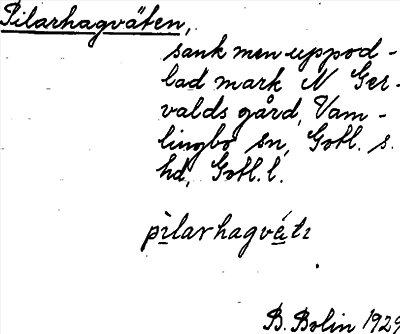 Pilarhagväten,
sank men uppod-
lad mark N Ger-
valds gård, Vam-
lingbo sn, Gotl. s.
hd, Gotl. l.
pilarhagväti
B. Bolin 1929